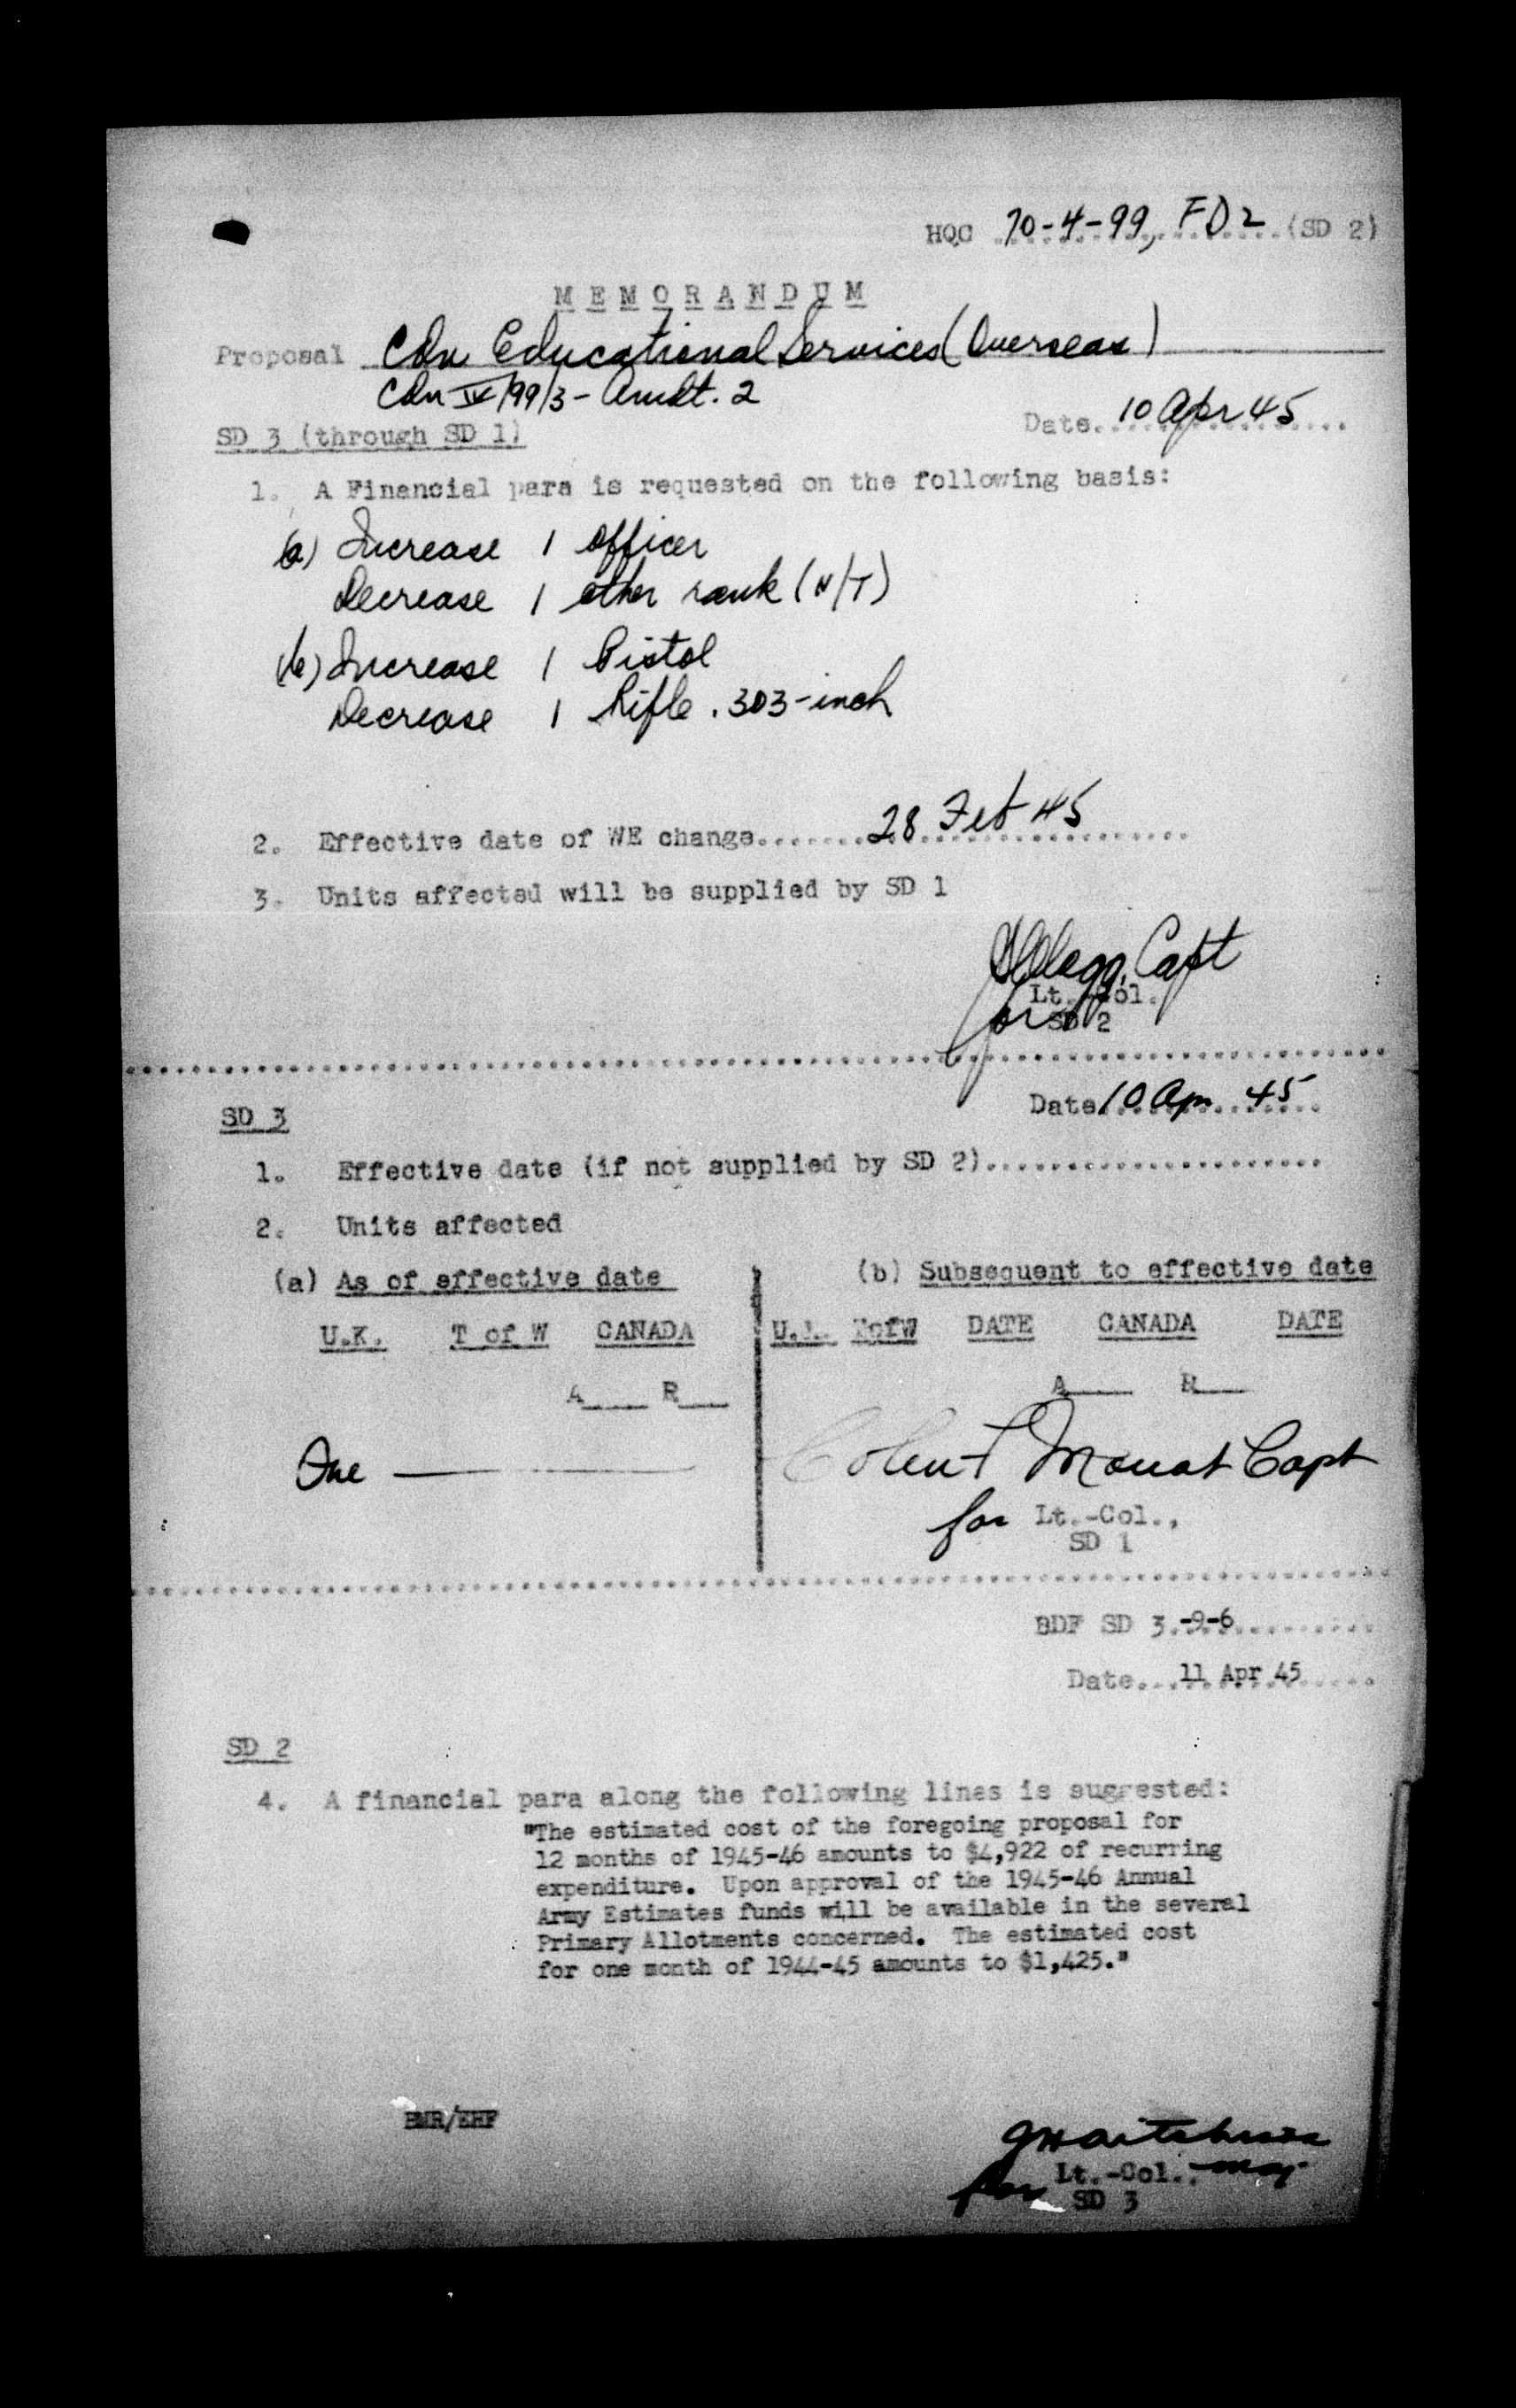 HQC 70-4-99, FD 2 (SD 2)
MEMORANDUM
Proposal Cdn Educational Services (Overseas)
Cdn IV/99/3 - Amdt. 2
Date 10 Apr 45
SD 3 (through SD 1)
1. A Financial para is requested on the following basis:
(a) Increase 1 officer
Decrease 1 other rank (N/T)
(b) Increase 1 Pistol
Decrease 1 Rifle .303-inch
2. Effective date of WE change........28 Feb 45
3. Units affected will be supplied by SD 1
Capt
Lt.-Col.
for SD 2
Date 10 Apr 45
SD 3
1. Effective date (if not supplied by SD 2)......................
2. Units affected
(a) As of effective date (b) Subsequent to effective date
U.K. T of W CANADA U.K. TofW DATE CANADA DATE
A____ R____ A____ R____
One
Mouat Capt
for Lt.-Col.,
SD 1
BDF SD 3.-9-6
Date...11 Apr 45
SD 2
4. A financial para along the following lines is suggested:
"The estimated cost of the foregoing proposal for
12 months of 1945-46 amounts to $4,922 of recurring
expenditure. Upon approval of the 1945-46 Annual
Army Estimates funds will be available in the several
Primary Allotments concerned. The estimated cost
for one month of 1944-45 amounts to $1,425."
BMR/EHF
Maj
for Lt.-Col.,
SD 3